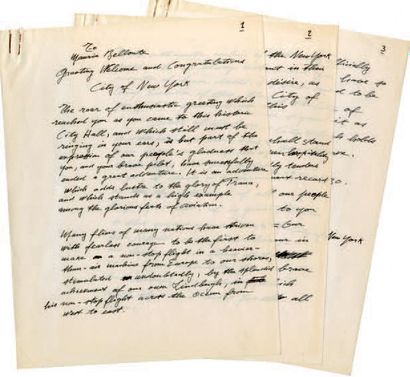 1
To
Maurice Bellonte
Greeting Welcome and Congratulations
City of New York
The roar of enthusiastic greeting which
reached you as you came to this historic
City Hall, and which still must be
ringing in your ears, is but part of the
expression of our people's gladness that
you, and your brave pilot, have successfully
ended a great adventure. It is an adventure
which adds luster to the glory of France,
and which stands as a high example
among the glorious feats of aviation.
Many fliers of many nations have striven
with fearless courage to be the first to
make a non-stop flight in a heavier-
than-air machine from Europe to our shores,
stimulated undoubtedly, by the splendid
achievement of our own Lindbergh, in
his non-stop flight across the ocean from
west to east.
2
the New York
in their
desire, as
City of
shall stand
hospitality
our people
to you
Our
in
brave
3
officially
have to
to be
of
it as
holds
tenders
record
New York
all